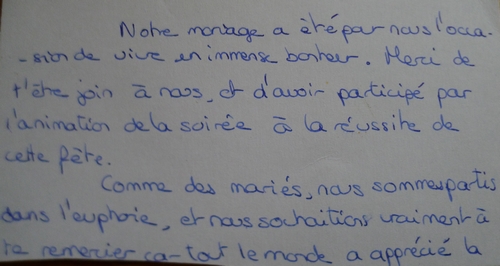 Notre mariage a été par nous l'occa-
-sion de vivre un immense bonheur. Merci de
t'être join à nous, et d'avoir participé par
l'animation de la soirée à la réussite de
cette fête.
Comme des mariés, nous sommes partis
dans l'euphorie, et nous souhaitions vraiment à
te remercier car tout le monde a apprécié la